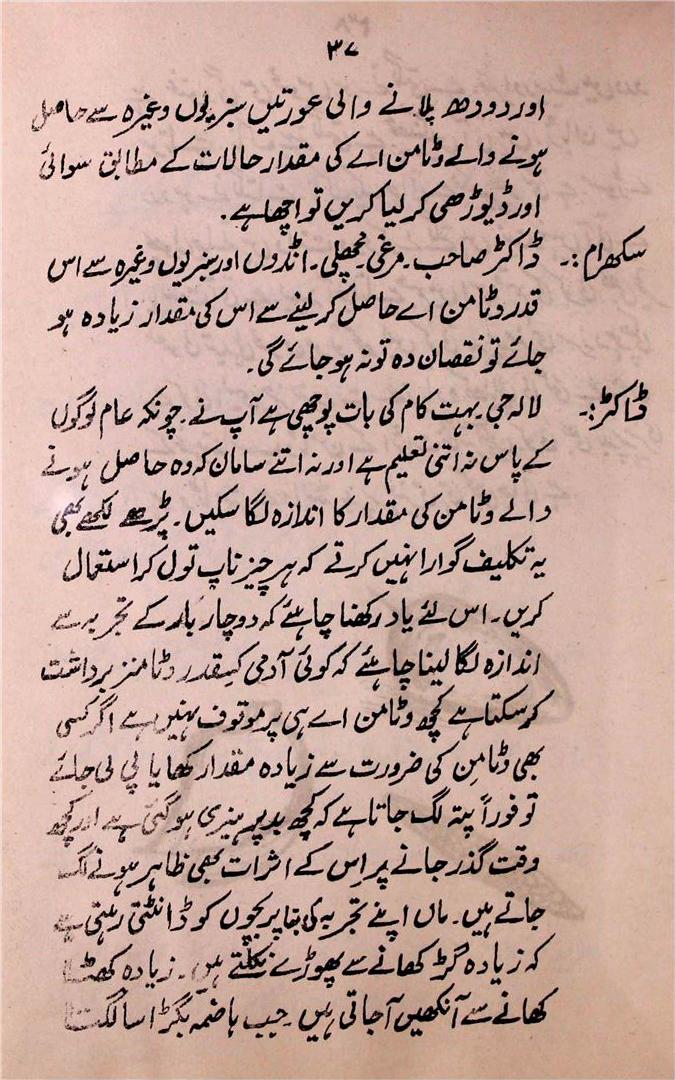 ۳۷
اور دودھ پلانے والی عورتیں سبزیوں وغیرہ سے حاصل
ہونے والے وٹامن اے کی مقدار حالات کے مطابق سوائی
اور ڈیوڑھی کر لیا کریں تو اچھا ہے.
سکھرام:۔ ڈاکٹر صاحب۔ مرغی۔ مچھلی۔ انڈوں اور سبزیوں وغیرہ سے اس
قدر وٹامن اے حاصل کر لینے سے اس کی مقدار زیادہ ہو
جائے تو نقصان دہ تو نہ ہو جائے گی۔
ڈاکٹر:۔ لالہ جی۔ بہت کام کی بات پوچھی ہے آپ نے۔ چونکہ عام لوگوں
کے پاس نہ اتنی تعلیم ہے اور نہ اتنے سامان کہ وہ حاصل ہونے
والے وٹامن کی مقدار کا اندازہ لگا سکیں۔ پڑھے لکھے بھی
یہ تکلیف گوارا نہیں کرتے کہ ہر چیز ناپ تول کر استعمال
کریں۔ اس لئے یاد رکھنا چاہئے کہ دو چار بار کے تجربہ سے
اندازہ لگا لینا چاہئے کہ کوئی آدمی کسقدر وٹامنز برداشت
کر سکتا ہے کچھ وٹامن اے ہی پر موقوف نہیں ہے اگر کسی
بھی وٹامن کی ضرورت سے زیادہ مقدار کھا یا پی لی جائے
تو فوراً پتہ لگ جاتا ہے کہ کچھ بد پرہیزی ہو گئی ہے اور کچھ
وقت گذر جانے پر اِس کے اثرات بھی ظاہر ہونے لگ
جاتے ہیں۔ ماں اپنے تجربہ کی بنا پر بچوں کو ڈانٹتی رہتی ہے
کہ زیادہ گڑ کھانے سے پھوڑے نکلتے ہیں۔ زیادہ کھٹا
کھانے سے آنکھیں آجاتی ہیں۔ جب ہاضمہ بگڑا سا لگتا